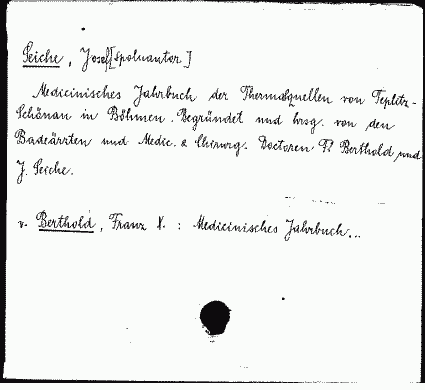 Seiche, Josef [spoluautor]
Medicinisches Jahrbuch der Thermalquellen von Teplitz-
Schönau in Böhmen. Begründet und hrsg. von den
Badeärzten und Medic. & Chirurg. Doctoren F. Berthold und
J. Seiche.
v. Berthold, Franz X. : Medicinisches Jahrbuch...